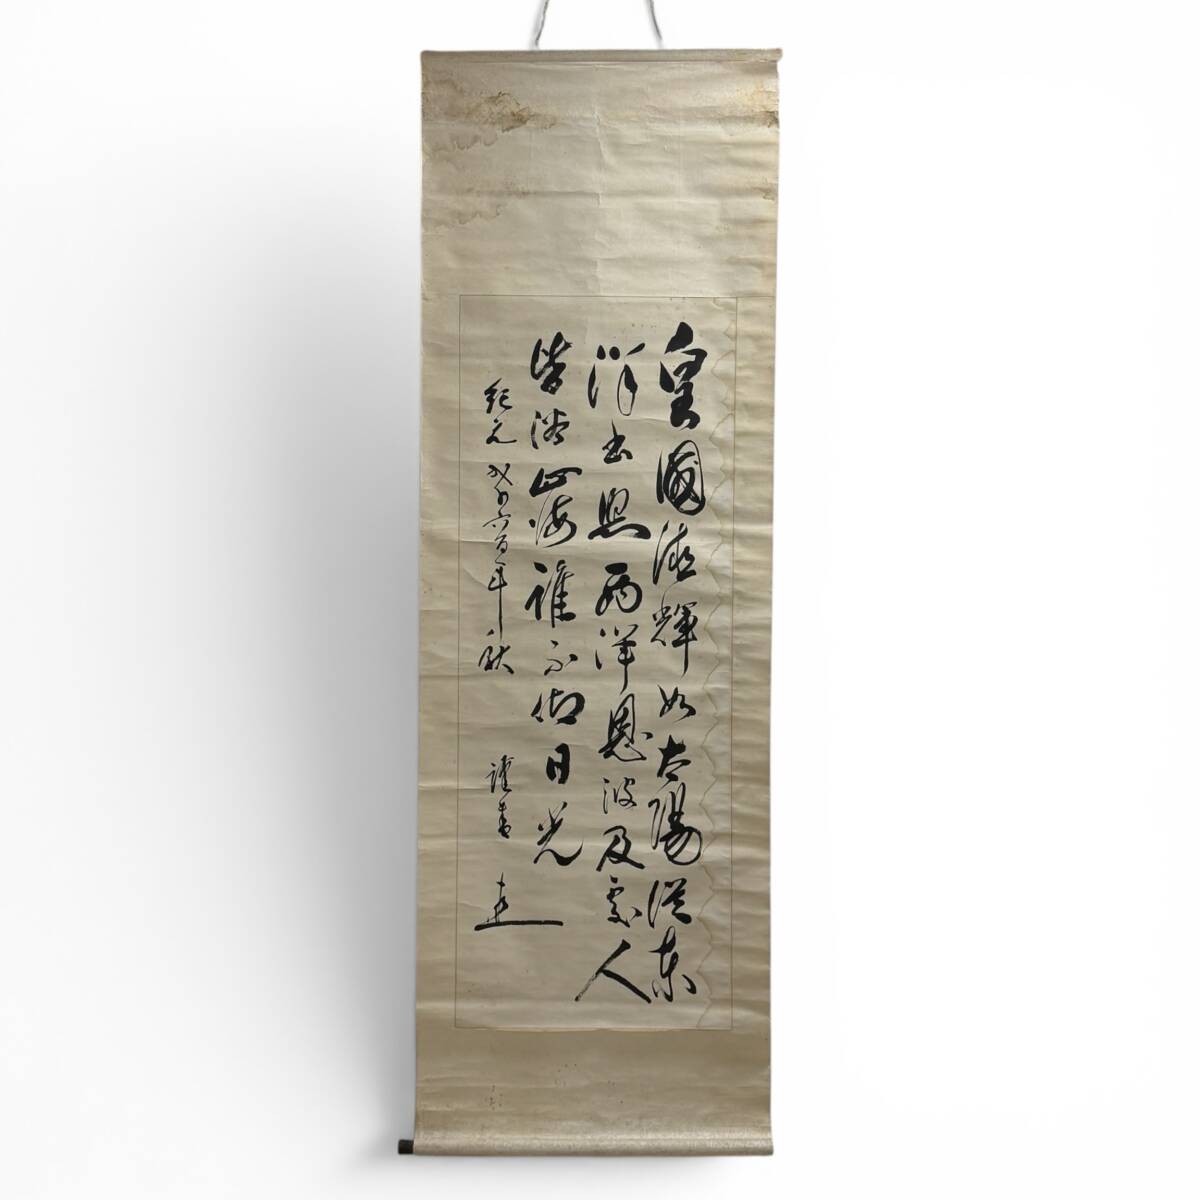 皇國德輝如太陽從東
洋出照西洋恩波及處人
皆浴四海誰不仰日光
紀元弐千六百年秋 謹書